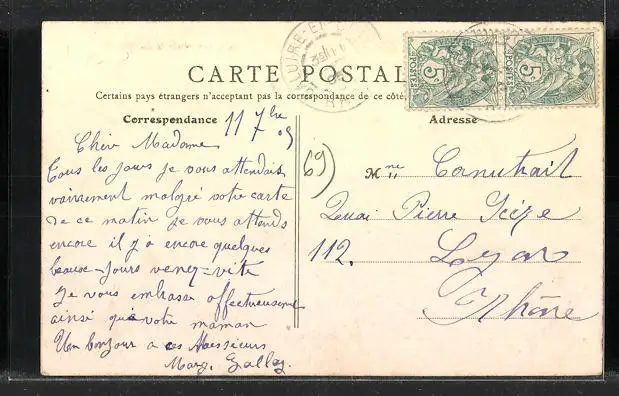 CARTE POSTAL
Certains pays étrangers n'acceptant pas la correspondance de ce côté,
Correspondance
Adresse
11 7bre 05
Chère Madame
Tous les jours je vous attendais
vainement malgré votre carte
de ce matin je vous attends
encore il y a encore quelques
beaux-jours venez-vite
Je vous embrasse affectueusement
ainsi que votre maman
Un bonjour a ces Messieurs
Marg.
69)
Mme
Quai Pierre Scize
112. Lyon
Rhône
5 5
POSTES